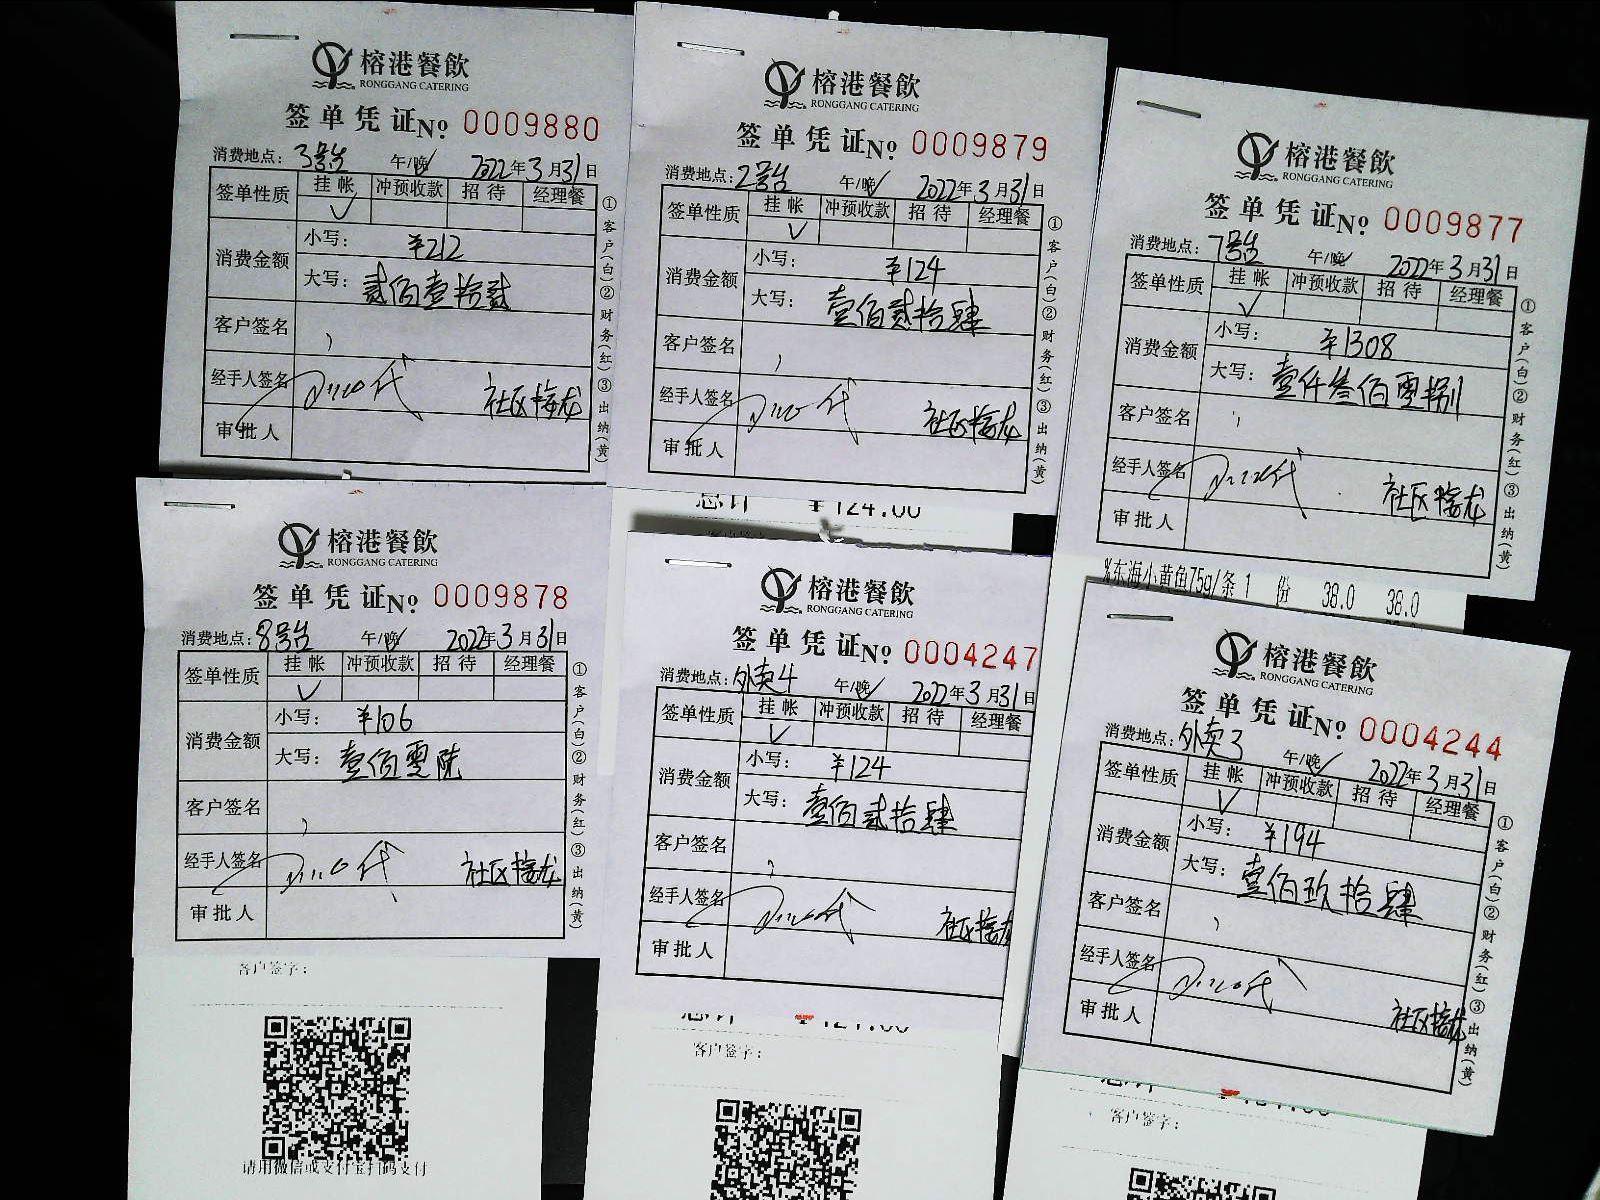 榕港餐飲
RONGGANG CATERING
签单凭证 No 0009880
消费地点：3号台 午/晚 2022年3月31日
签单性质 挂帐 冲预收款 招待 经理餐
消费金额 小写：¥212
大写：贰佰壹拾贰
客户签名
经手人签名 代 社区接龙
审批人
①客户(白)②财务(红)③出纳(黄)
榕港餐飲
RONGGANG CATERING
签单凭证 No 0009879
消费地点：2号台 午/晚 2022年3月31日
签单性质 挂帐 冲预收款 招待 经理餐
消费金额 小写：¥124
大写：壹佰贰拾肆
客户签名
经手人签名 代 社区接龙
审批人
①客户(白)②财务(红)③出纳(黄)
总计 ¥124.00
榕港餐飲
RONGGANG CATERING
签单凭证 No 0009877
消费地点：7号台 午/晚 2022年3月31日
签单性质 挂帐 冲预收款 招待 经理餐
消费金额 小写：¥1308
大写：壹仟叁佰零捌
客户签名
经手人签名 代 社区接龙
审批人
①客户(白)②财务(红)③出纳(黄)
%东海小黄鱼75g/条 1 份 38.0 38.0
榕港餐飲
RONGGANG CATERING
签单凭证 No 0009878
消费地点：8号台 午/晚 2022年3月31日
签单性质 挂帐 冲预收款 招待 经理餐
消费金额 小写：¥106
大写：壹佰零陆
客户签名
经手人签名 代 社区接龙
审批人
①客户(白)②财务(红)③出纳(黄)
客户签字：
请用微信或支付宝扫码支付
榕港餐飲
RONGGANG CATERING
签单凭证 No 0004247
消费地点：外卖4 午/晚 2022年3月31日
签单性质 挂帐 冲预收款 招待 经理餐
消费金额 小写：¥124
大写：壹佰贰拾肆
客户签名
经手人签名 代 社区接龙
审批人
总计 ¥124.00
客户签字：
榕港餐飲
RONGGANG CATERING
签单凭证 No 0004244
消费地点：外卖3 午/晚 2022年3月31日
签单性质 挂帐 冲预收款 招待 经理餐
消费金额 小写：¥194
大写：壹佰玖拾肆
客户签名
经手人签名 代 社区接龙
审批人
①客户(白)②财务(红)③出纳(黄)
客户签字：